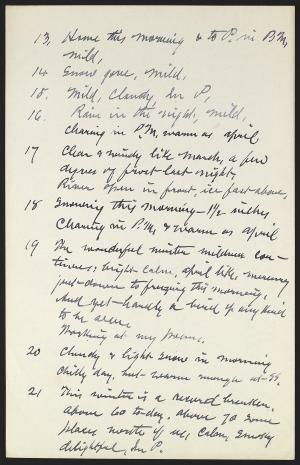 13, Home this morning & to P. in P.M,
mild,
14 Snow gone, mild,
15. Mild, Cloudy, In P,
16. Rain in the night, mild,
clearing in P.M, warm as april
17 Clear & windy like March, a few
degrees of frost last night,
River open in front, ice fast above,
18 Snowing this morning - 1½ inches
Clearing in P.M, & warm as April
19 The wonderful winter mildness con-
tinues; bright calm, april like, mercury
just down to freezing this morning,
And yet hardly a bird of any kind
to be seen.
Working at my poems.
20 Cloudy & light snow in morning
Chilly day, but warm enough at
21 This winter is a record breaker,
above 60 to-day, above 70 some
places north of us, Calm, smoky
delightful, In P.